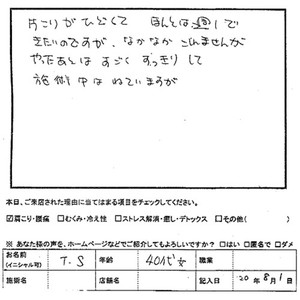 肩こりがひどくて ほんとは週1で
きたいのですが、なかなかこれませんが
やったあとはすごくすっきりして
施術中はねていますが
本日、ご来店された理由に当てはまる項目をチェックしてください。
☑肩こり・腰痛 □むくみ・冷え性 □ストレス解消・癒し・デトックス □その他( )
※ あなた様の声を、ホームページなどでご紹介してもよろしいですか? □はい □匿名で □ダメ
お名前 (イニシャル可) T.S 年齢 40代女 職業
施術名 店舗名 記入日 20年8月1日